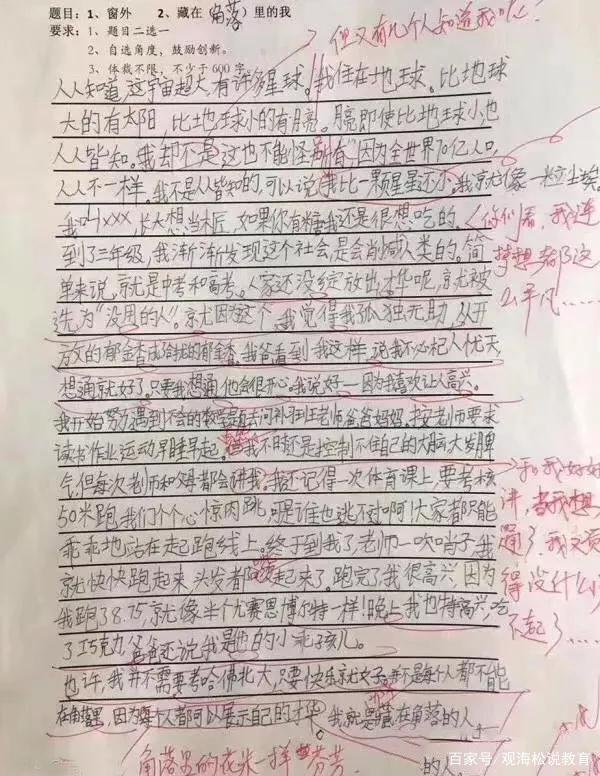 题目：1、窗外 2、藏在（角落）里的我
要求：1、题目二选一
2、自选角度，鼓励创新。
3、体裁不限，不少于600字
但又有几个人知道我呢！
人人知道，这宇宙超大有许多星球。我住在地球。比地球
大的有太阳，比地球小的有月亮。月亮即使比地球小，也
人人皆知。我却不是这也不能怪所有，因为全世界70亿人口，
人人不一样。我不是人皆知的，可以说我比一颗星星还小，我就像一粒尘埃。
我叫xxx，长大想当木匠，如果你有糖我还是很想吃的。
你们看，我连梦想都这么平凡……
到了三年级，我渐渐发现这个社会，是会消减人类的。简
单来说，就是中考和高考。人家还没绽放出才华呢，就被
选为“没用的人”。就因为这个，我觉得我孤独无助，从开
放的郁金香成给我的郁金香。我爸看到我这样，说我不必杞人忧天，
想通就好了。只要我想通，他会很开心。我说好—因为我喜欢让人高兴。
我开始努力遇到不会的数学题去问补习班老师爸爸妈妈。按老师要求
读书作业运动早睡早起。但我不时还是控制不住自己的大脑大发脾
气，但每次老师和父母都会讲我。我还记得一次体育课上，要考核
50米跑，我们个个心惊肉跳，可是谁也逃不过啊！大家都只能
乖乖地站在起跑线上。终于到我了，老师一吹哨子，我
就快快跑起来，头发都起来了。跑完了，我很高兴，因为
我跑了8.75，就像半个九赛恩博尔特一样！晚上我也特高兴，吃
了巧克力，爸爸还说我是他的小乖孩儿。
也许，我并不需要考哈佛北大，只要快乐就好。并不是每个人都不能
在角落里，因为每个人都可以展示自己的才华。我就是藏在角落的人
角落里的花朵一样芬芳
的人
百家号/观海松说教育